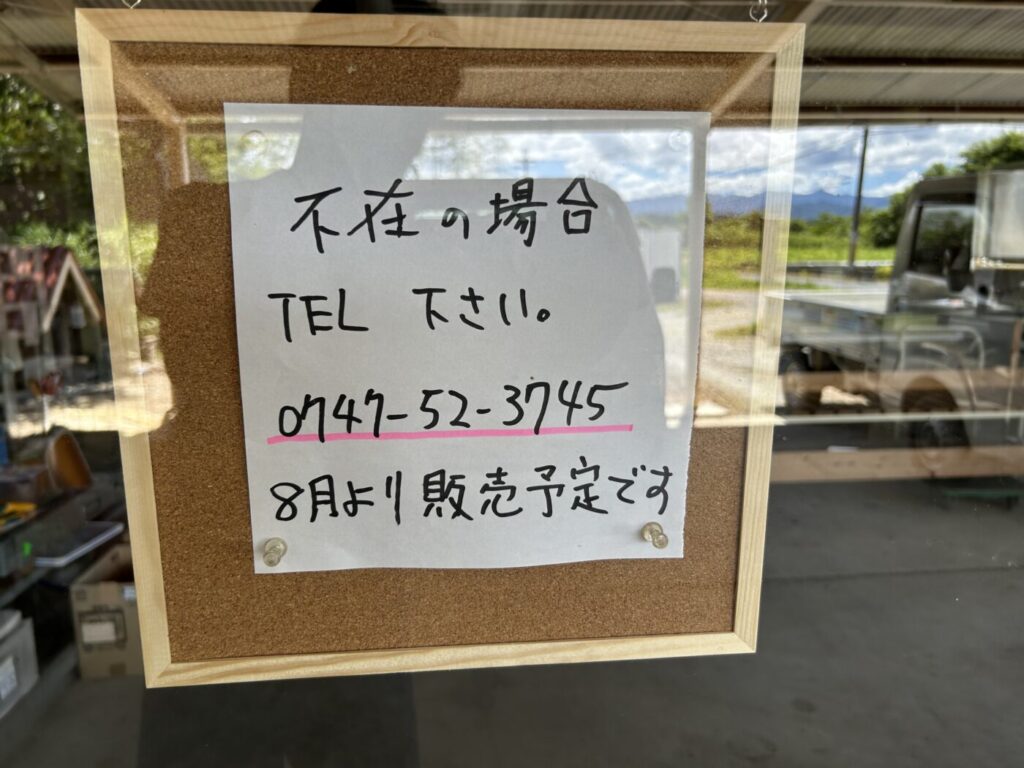 不在の場合
TEL 下さい。
0747-52-3745
8月より販売予定です